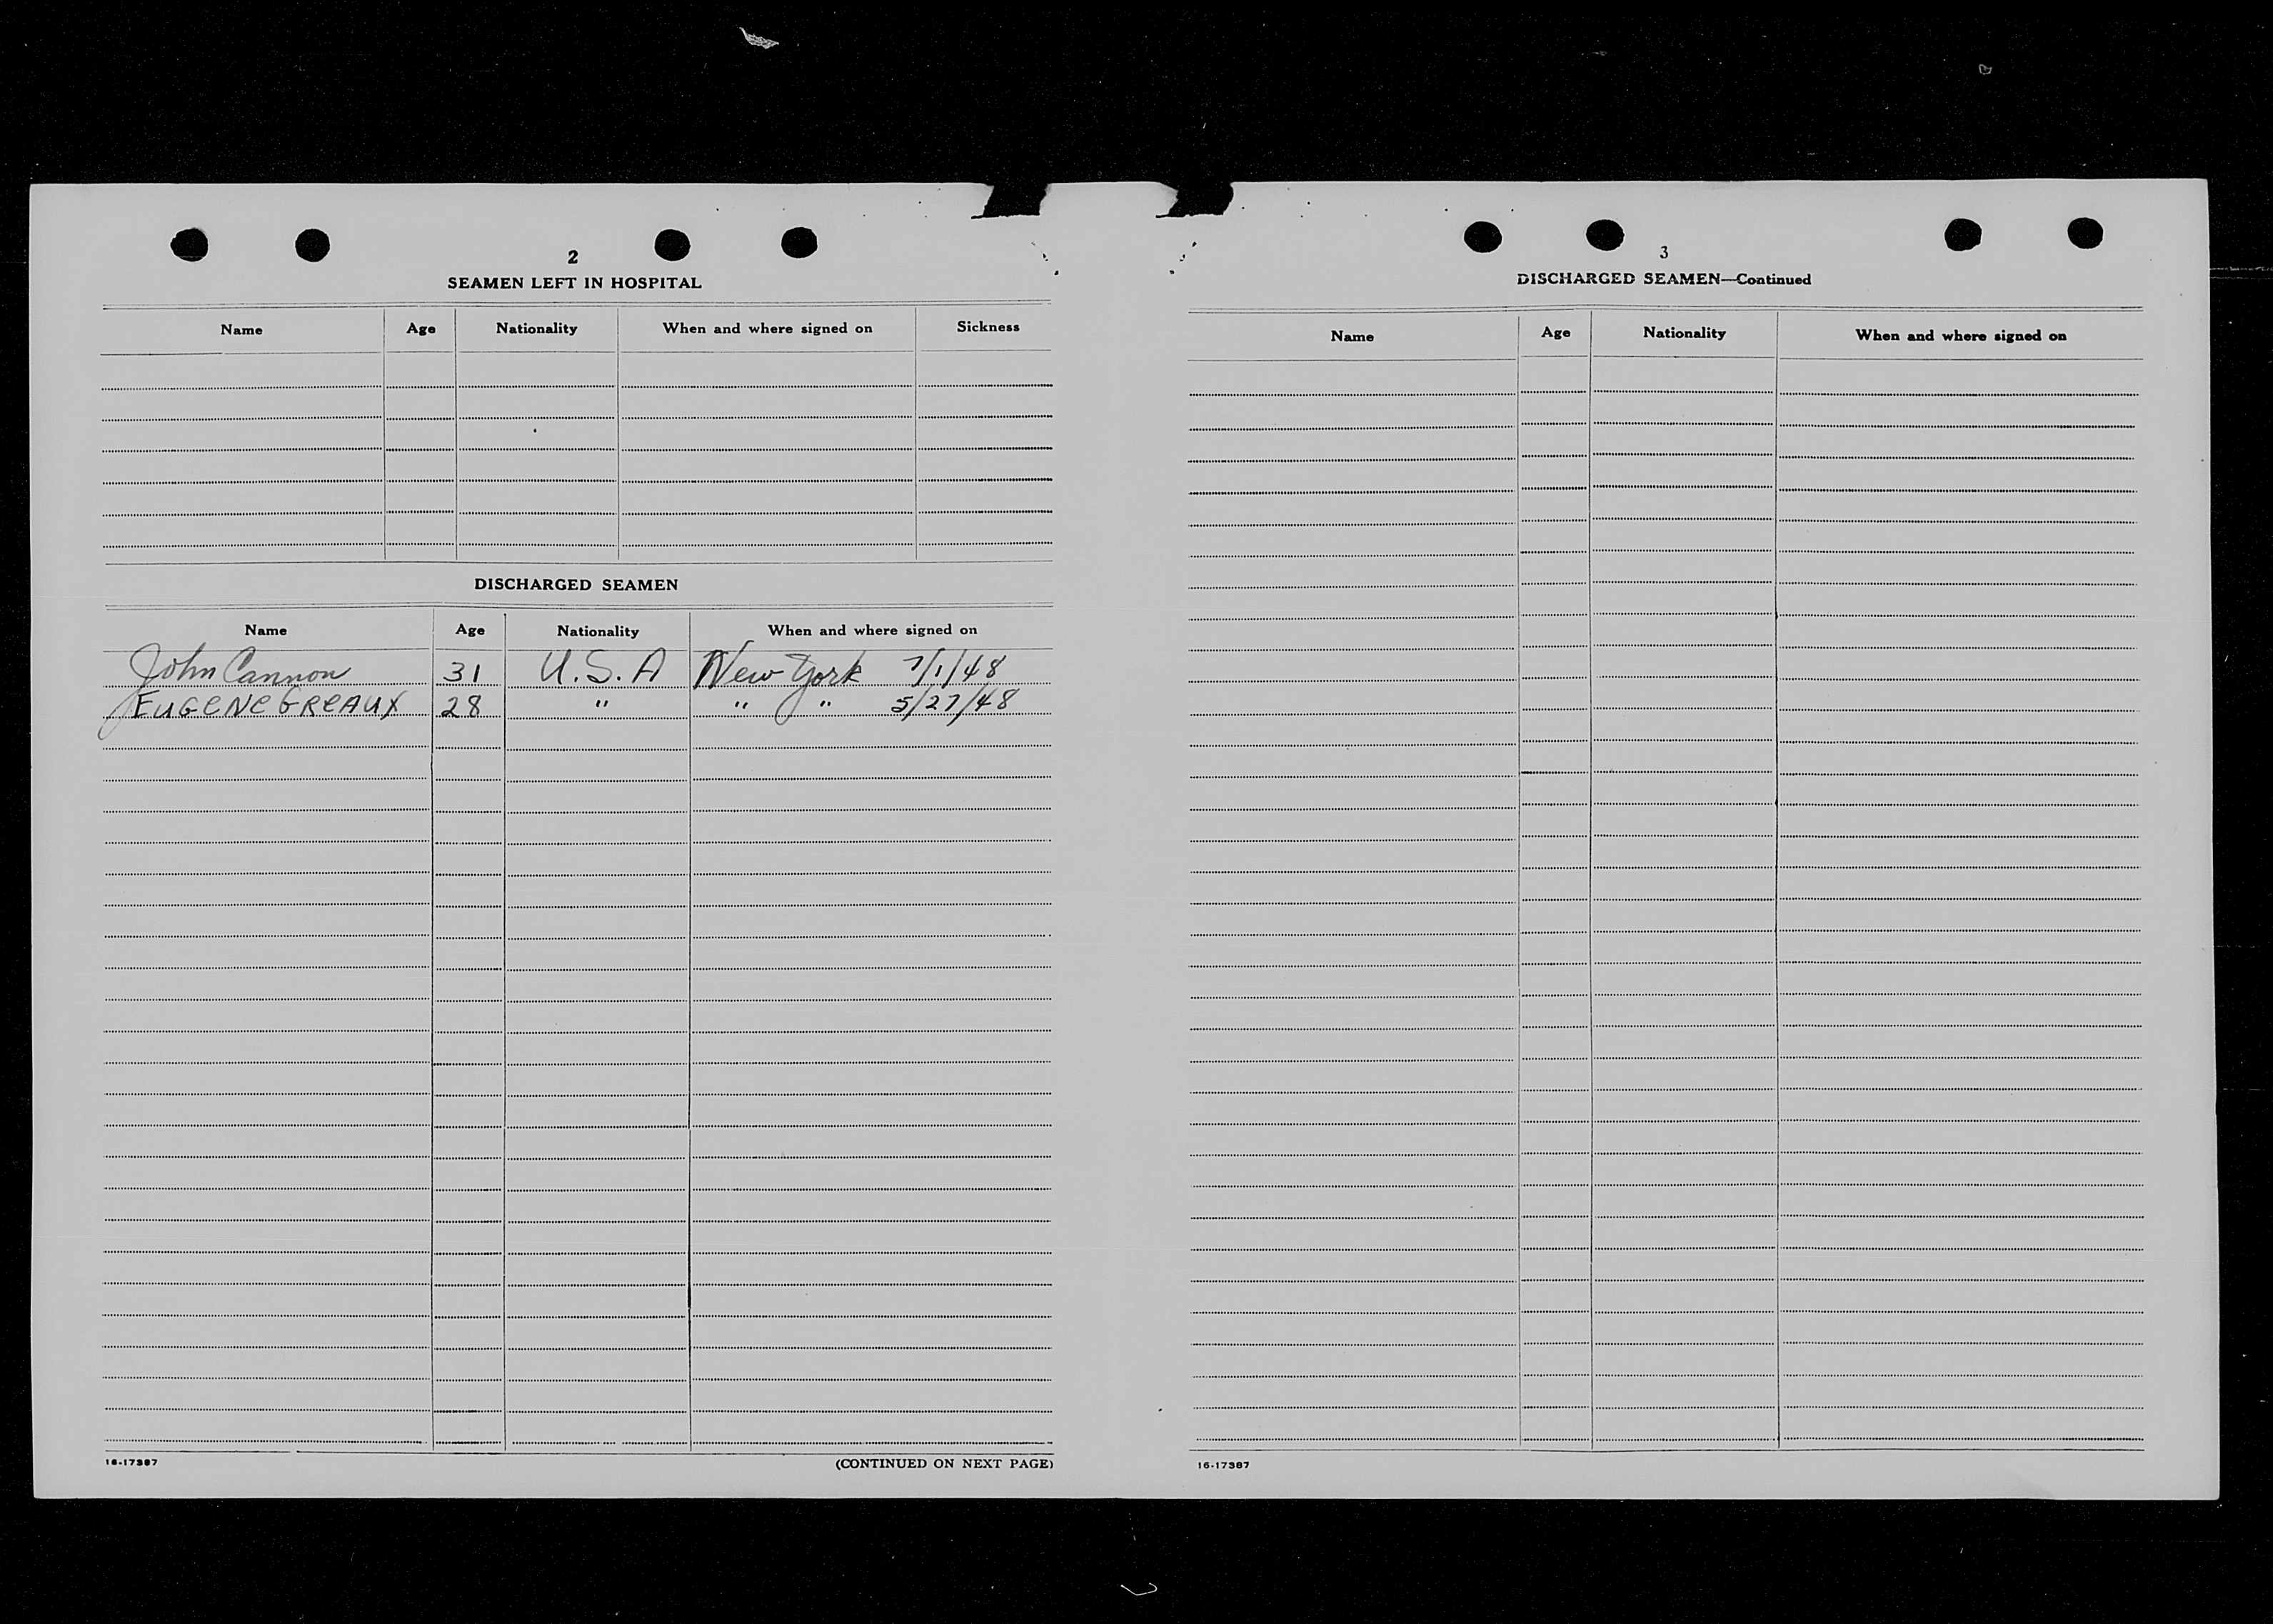 2
SEAMEN LEFT IN HOSPITAL
Name Age Nationality When and where signed on Sickness
DISCHARGED SEAMEN
Name Age Nationality When and where signed on
John Cannon 31 U.S.A New York 7/1/48
EUGENE GREAUX 28 " " " 5/27/48
16-17387 (CONTINUED ON NEXT PAGE)
3
DISCHARGED SEAMEN—Continued
Name Age Nationality When and where signed on
16-17387